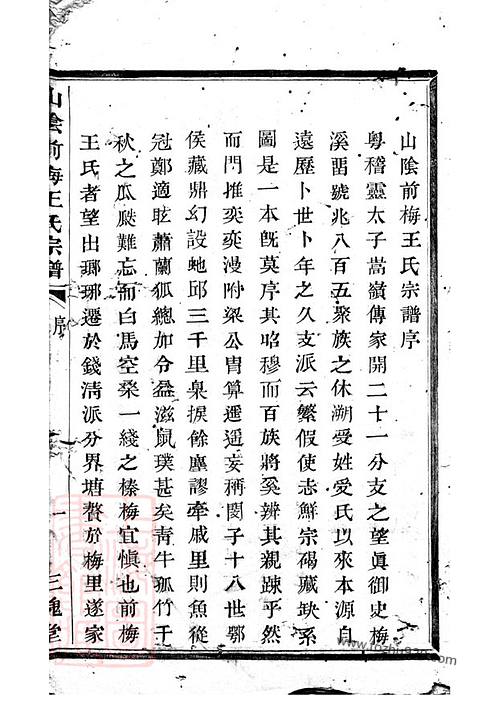 山陰前梅王氏宗譜序
粵稽靈太子嵩嶺傳家開二十一分支之望眞御史梅
溪畱號兆八百五聚族之休朔受姓受氏以來本源自
遠歷卜世卜年之久支派云繁假使志鮮宗碣藏玦系
圖是一本旣莫序其昭穆而百族將奚辨其親踈乎然
而門推奕奕漫附梁公胄算遞遥妄稱閔子十八世鄂
侯藏鼎幻設虵邱三千里臬捩餘塵謬牽戚里則魚從
冠鄭適眩蕭蘭狐總加令益滋鼠璞甚矣靑牛孤竹千
秋之瓜瓞難忘而白馬空桑一綫之榛梅宜愼也前梅
王氏者望出瑯琊遷於錢清派分界塘贅於梅里遂家
山陰前梅王氏宗譜
序
一
三槐堂